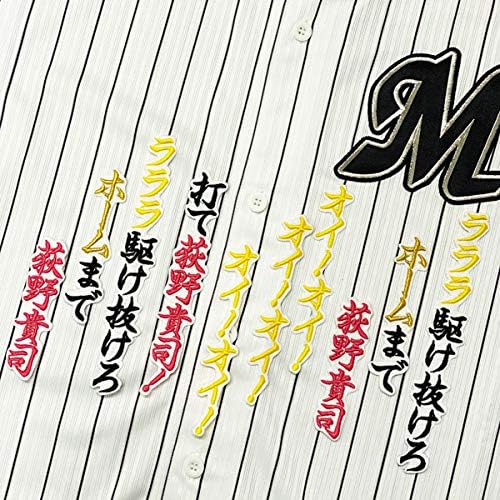 M
ラララ駆け抜けろ
ホームまで
荻野貴司
オイ!オイ!
オイ!オイ!
オイ!オイ!
打て荻野貴司!
ラララ駆け抜けろ
ホームまで
荻野貴司